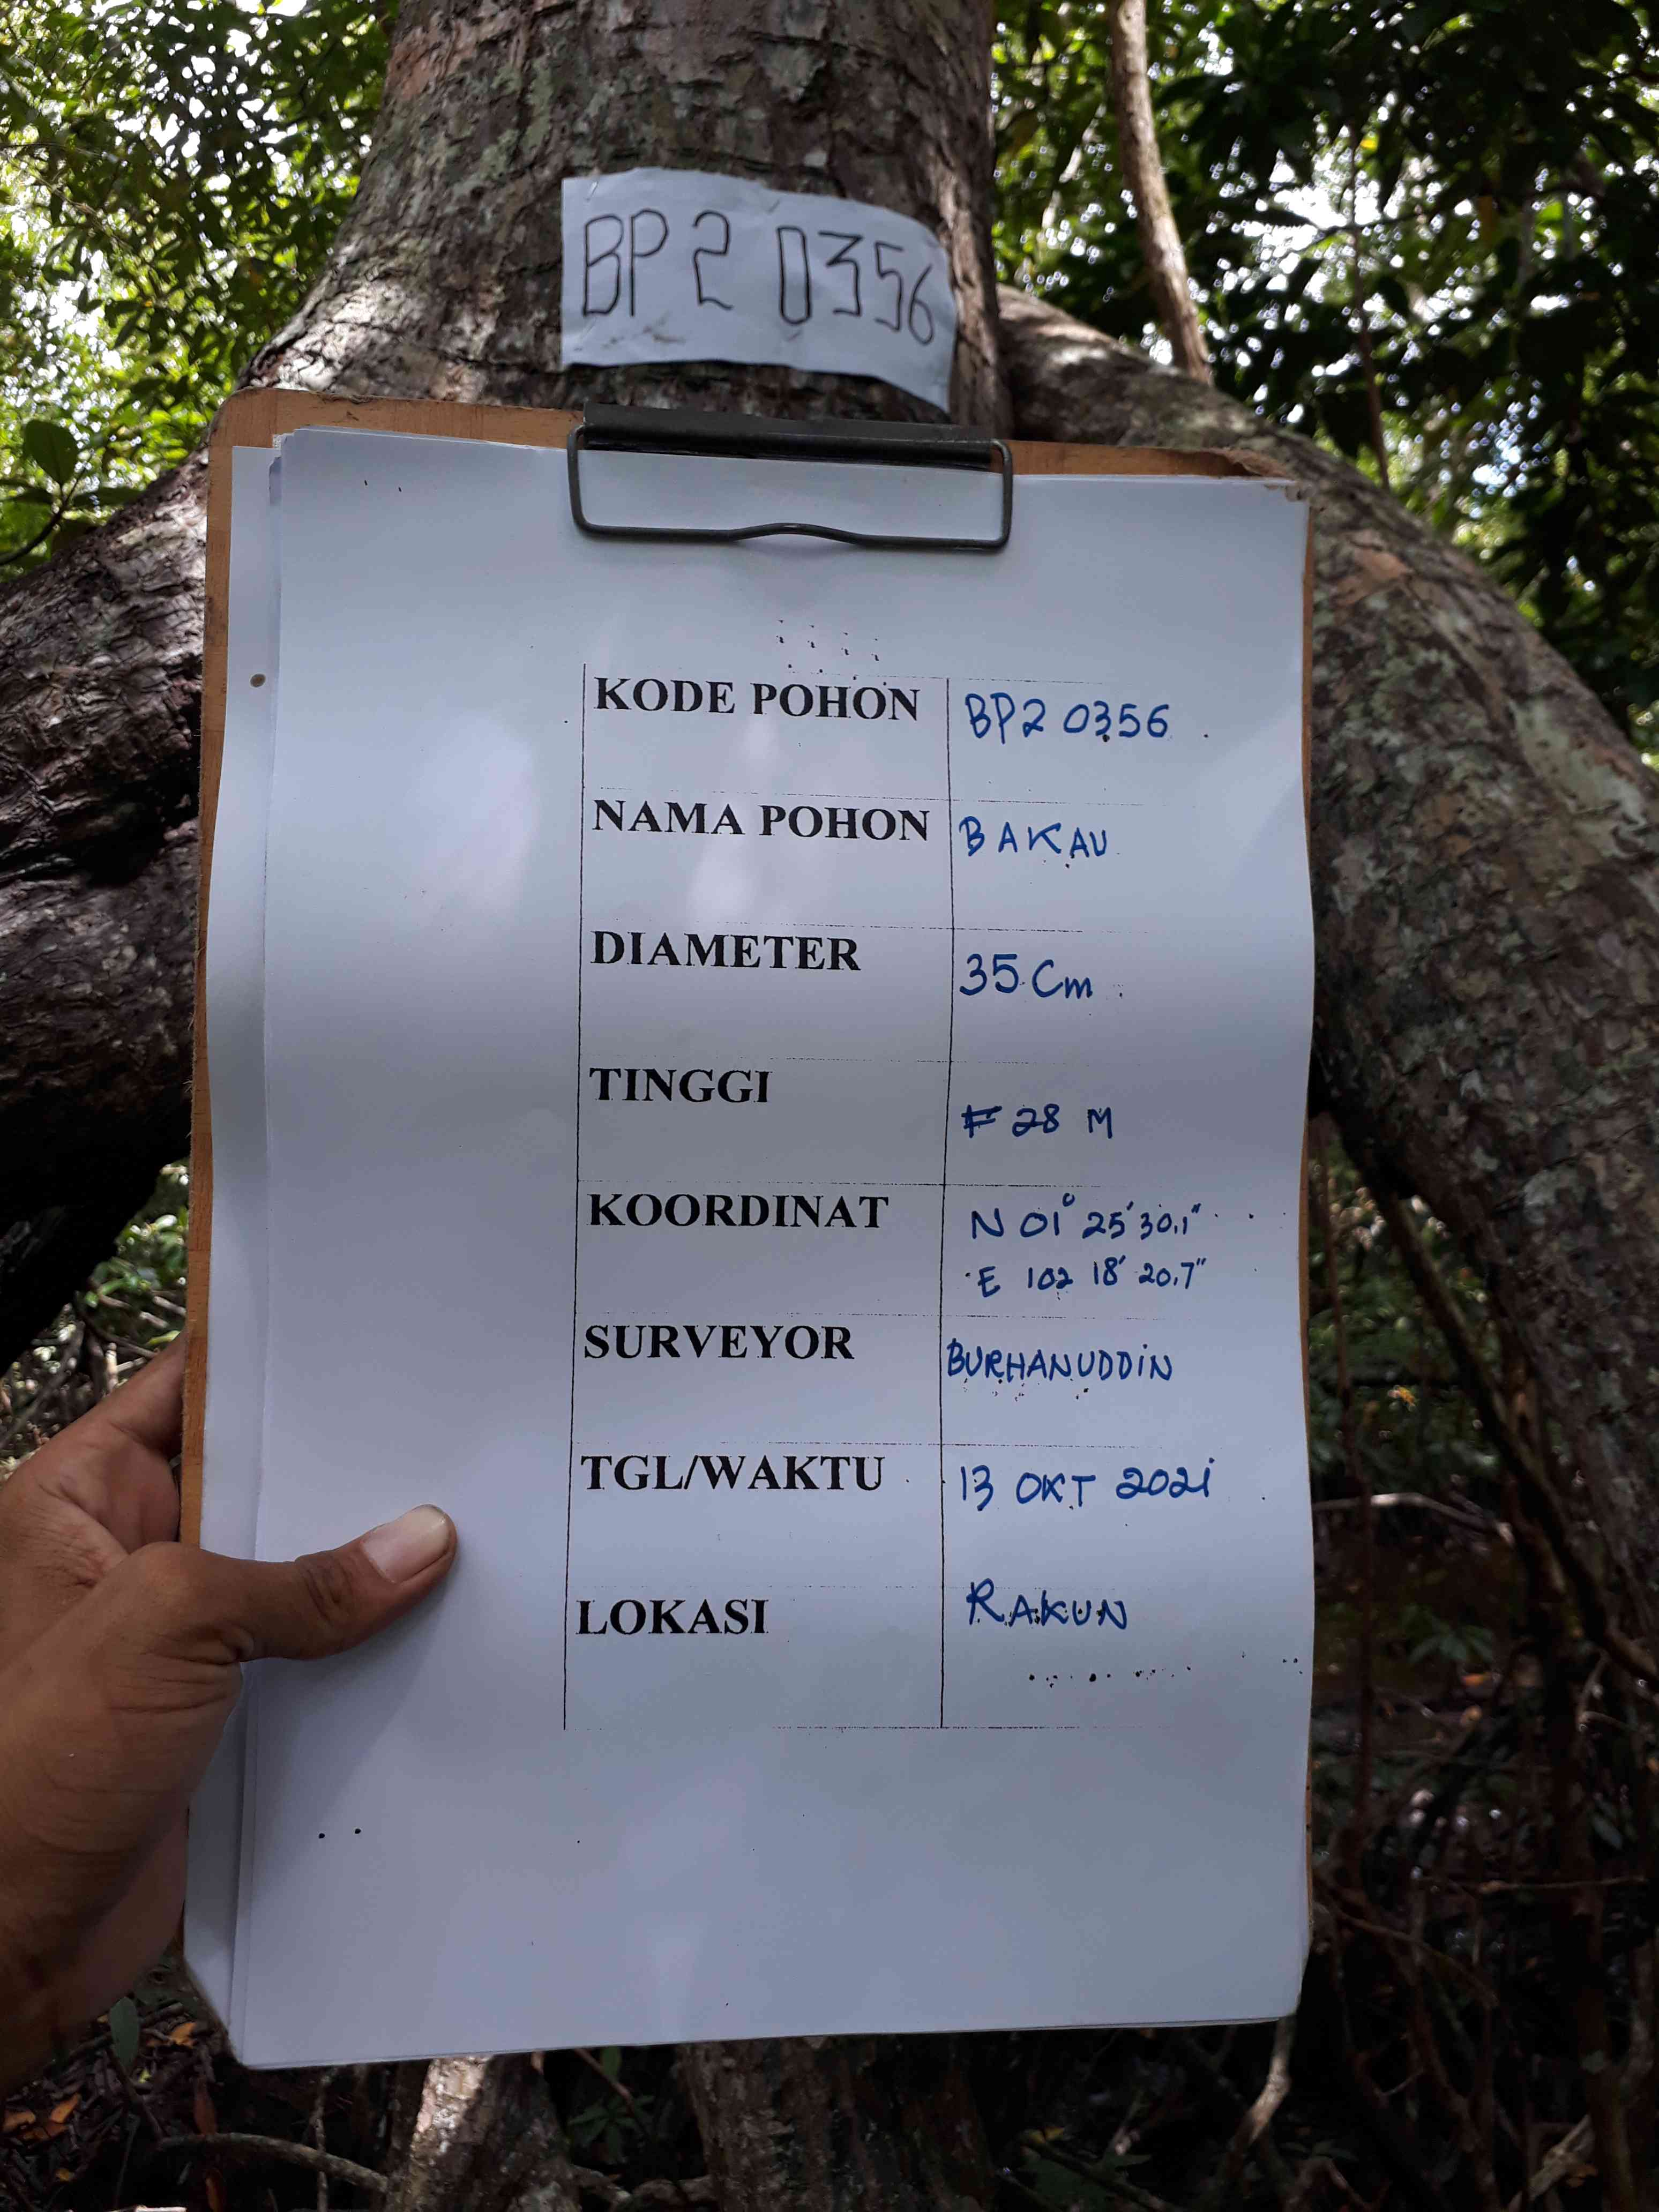 BP2 0356
KODE POHON BP2 0356
NAMA POHON BAKAU
DIAMETER 35 Cm
TINGGI 28 M
KOORDINAT N 01° 25' 30,1"
E 102 18' 20,7"
SURVEYOR BURHANUDDIN
TGL/WAKTU 13 OKT 2021
LOKASI RAKUN